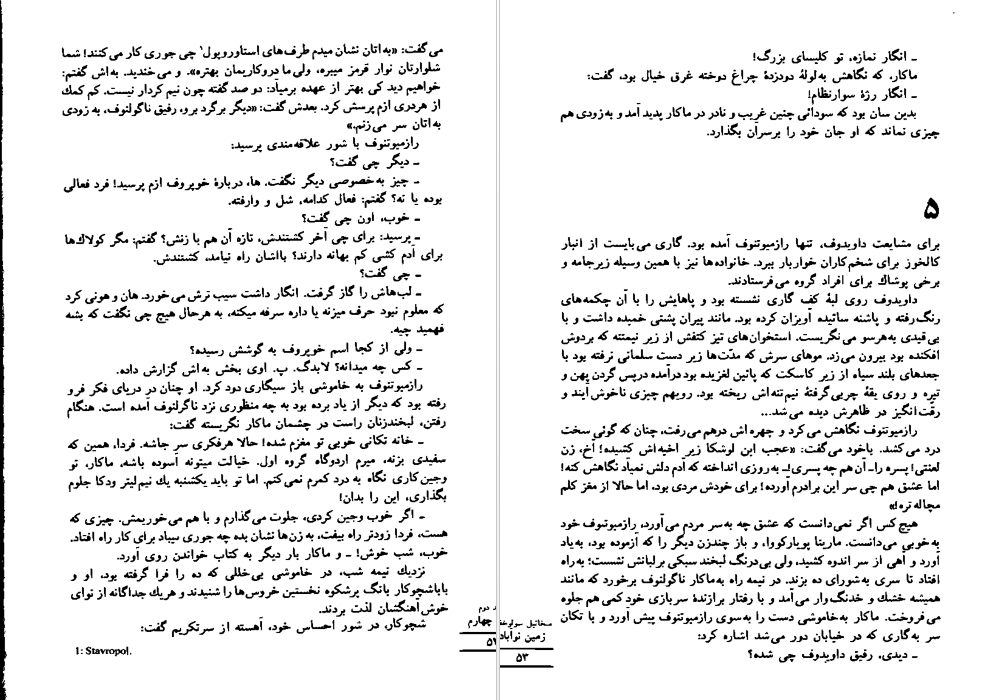 می‌گفت: «به‌اتان نشان میدم طرف‌های استاوروپول¹ چی جوری کار می‌کنند! شما
شلوارتان نوار قرمز میبره، ولی ما دروکاریمان بهتره». و می‌خندید. به‌اش گفتم:
خواهیم دید کی بهتر از عهده برمیآد: دو صد گفته چون نیم کردار نیست. کم کمك
از هر دری ازم پرسش کرد. بعدش گفت: «دیگر برگرد برو، رفیق ناگولنوف، به زودی
به‌اتان سر می‌زنم.»
رازمیوتنوف با شور علاقه‌مندی پرسید:
ـ دیگر چی گفت؟
ـ چیز به خصوصی دیگر نگفت. ها، دربارهٔ خوپروف ازم پرسید! فرد فعالی
بوده یا نه؟ گفتم: فعال کدامه، شل و وارفته.
ـ خوب، اون چی گفت؟
ـ پرسید: برای چی آخر کشتندش، تازه آن هم با زنش؟ گفتم: مگر کولاك‌ها
برای آدم کشی کم بهانه دارند؟ باا‌شان راه نیامد، کشتندش.
ـ چی گفت؟
ـ لب‌هاش را گاز گرفت. انگار داشت سیب ترش می‌خورد. هان و هونی کرد
که معلوم نبود حرف میزنه یا داره سرفه میکنه، به هرحال هیچ چی نگفت که بشه
فهمید چیه.
ـ ولی از کجا اسم خوپروف به گوشش رسیده؟
ـ کس چه میدانه؟ لابد گ. پ. اوی بخش به‌اش گزارش داده.
رازمیوتنوف به خاموشی باز سیگاری دود کرد. او چنان در دریای فکر فرو
رفته بود که دیگر از یاد برده بود به چه منظوری نزد ناگولنوف آمده است. هنگام
رفتن، لبخندزنان راست در چشمان ماکار نگریسته گفت:
ـ خانه تکانی خوبی تو مغزم شده! حالا هر فکری سر جاشه. فردا، همین که
سفیدی بزنه، میرم اردوگاه گروه اول. خیالت میتونه آسوده باشه، ماکار، تو
وجین کاری نگاه به درد کمرم نمی‌کنم. اما تو باید یکشنبه یك نیم لیتر ودکا جلوم
بگذاری، این را بدان!
ـ اگر خوب وجین کردی، جلوت می‌گذارم و با هم می‌خوریمش. چیزی که
هست، فردا زودتر راه بیفت، به زن‌ها نشان بده چه جوری سیباد برای کار راه افتاد.
خوب، شب خوش! ـ و ماکار بار دیگر به کتاب خواندن روی آورد.
نزدیك نیمه شب، در خاموشی بی‌خللی که ده را فرا گرفته بود، او و
باباشچوکار بانگ پرشکوه نخستین خروس‌ها را شنیدند و هریك جداگانه از نوای
خوش آهنگشان لذت بردند.
شچوکار، در شور احساس خود، آهسته از سر تکریم گفت:
1: Stavropol.
دوم
چهارم
ـ انگار نمازه، تو کلیسای بزرگ!
ماکار، که نگاهش به لولهٔ دودزدهٔ چراغ دوخته غرق خیال بود، گفت:
ـ انگار رژهٔ سوارنظام!
بدین سان بود که سودائی چنین غریب و نادر در ماکار پدید آمد و به زودی هم
چیزی نماند که او جان خود را بر سر آن بگذارد.
۵
برای مشایعت داویدوف، تنها رازمیوتنوف آمده بود. گاری می‌بایست از انبار
کالخوز برای شخم‌کاران خواربار ببرد. خانواده‌ها نیز با همین وسیله زیرجامه و
برخی پوشاك برای افراد گروه می‌فرستادند.
داویدوف روی لبهٔ کف گاری نشسته بود و پاهایش را با آن چکمه‌های
رنگ‌رفته و پاشنه ساییده آویزان کرده بود. مانند پیران پشتی خمیده داشت و با
بی‌قیدی به‌هرسو می‌نگریست. استخوان‌های تیز کتفش از زیر نیمتنه که بردوش
افکنده بود بیرون می‌زد. موهای سرش که مدّت‌ها زیر دست سلمانی نرفته بود با
جعدهای بلند سیاه از زیر کاسکت که پائین لغزیده بود درآمده درپس گردن پهن و
تیره و روی یقهٔ چربی‌گرفتهٔ نیم‌تنه‌اش ریخته بود. رویهم چیزی ناخوش‌آیند و
رقّت‌انگیز در ظاهرش دیده می‌شد...
رازمیوتنوف نگاهش می‌کرد و چهره‌اش درهم می‌رفت، چنان که گوئی سخت
درد می‌کشد. باخود می‌گفت: «عجب این لوشکا زیر اخیه‌اش کشیده! آخ، زن
لعنتی! پسره راـ آن هم چه پسری!ـ به‌روزی انداخته که آدم دلش نمیآد نگاهش کنه!
اما عشق هم چی سر این برادرم آورده! برای خودش مردی بود، اما حالا از مغز کلم
مچاله‌تره!»
هیچ کس اگر نمی‌دانست که عشق چه به‌سر مردم می‌آورد، رازمیوتنوف خود
به خوبی می‌دانست. مارینا پویارکووا، و باز چندزن دیگر را که آزموده بود، به‌یاد
آورد و آهی از سر اندوه کشید، ولی بی‌درنگ لبخند سبکی برلبانش نشست؛ به‌راه
افتاد تا سری به‌شورای ده بزند. در نیمه راه به‌ماکار ناگولنوف برخورد که مانند
همیشه خشك و خدنگ‌وار می‌آمد و با رفتار برازندهٔ سربازی خود کمی هم جلوه
می‌فروخت. ماکار به‌خاموشی دست را به‌سوی رازمیوتنوف پیش آورد و با تکان
سر به‌گاری که در خیابان دور می‌شد اشاره کرد:
ـ دیدی، رفیق داویدوف چی شده؟
میخائیل شولوخف
زمین نوآباد
۵۳